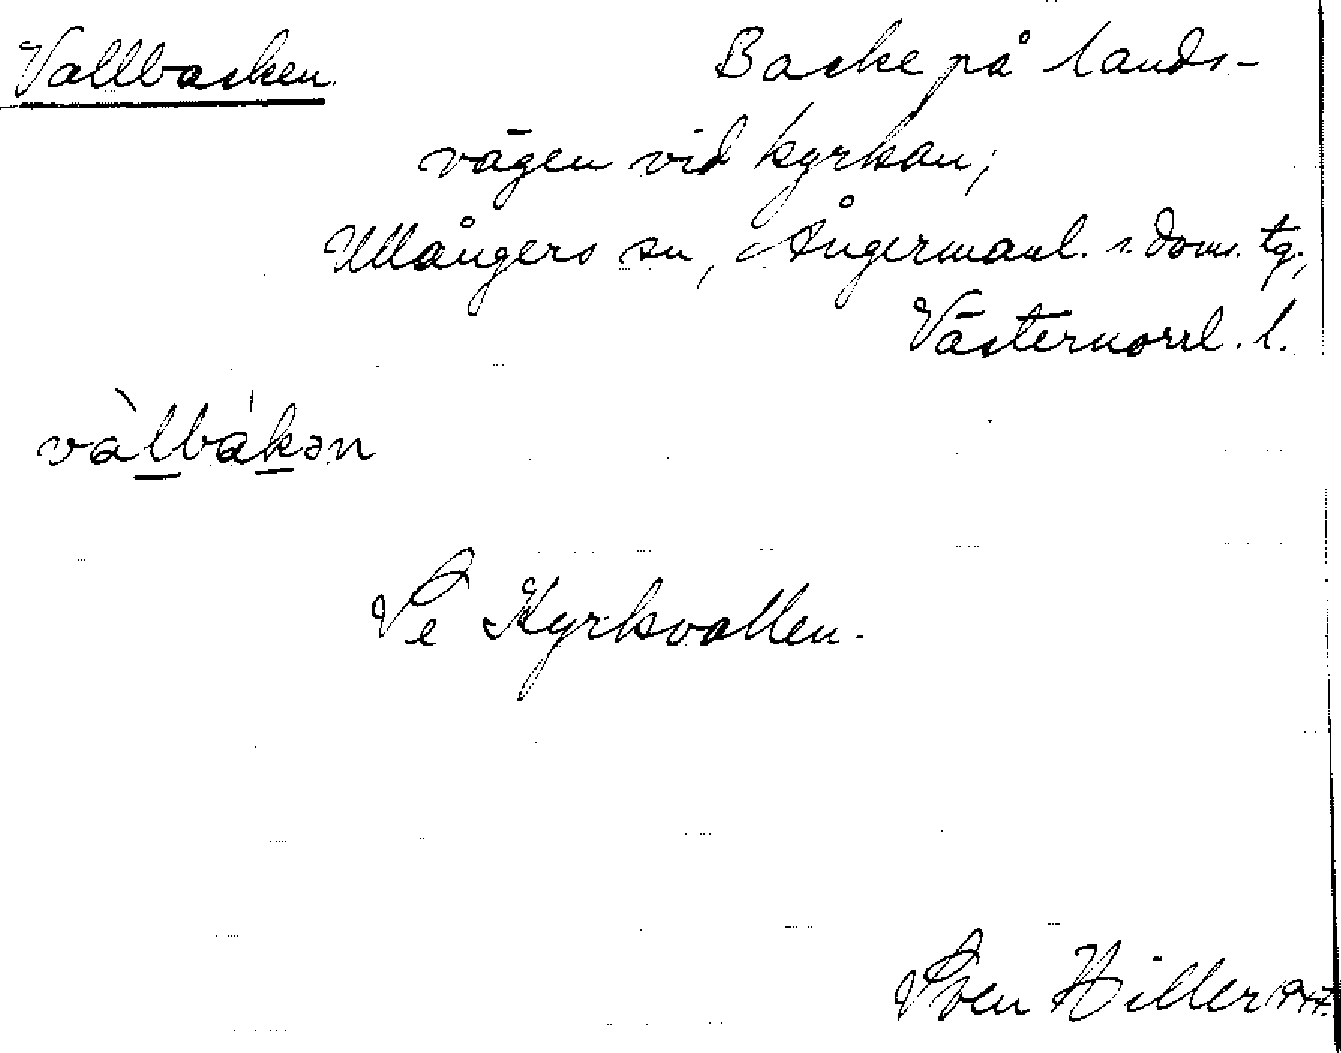 Vallbacken
Backe på lands-
vägen vid kyrkan;
Ullångers sn, Ångermanl. s. doms. tg.,
Västernorrl. l.
vàlbákən
Se Kyrkvallen.
Sven Hiller